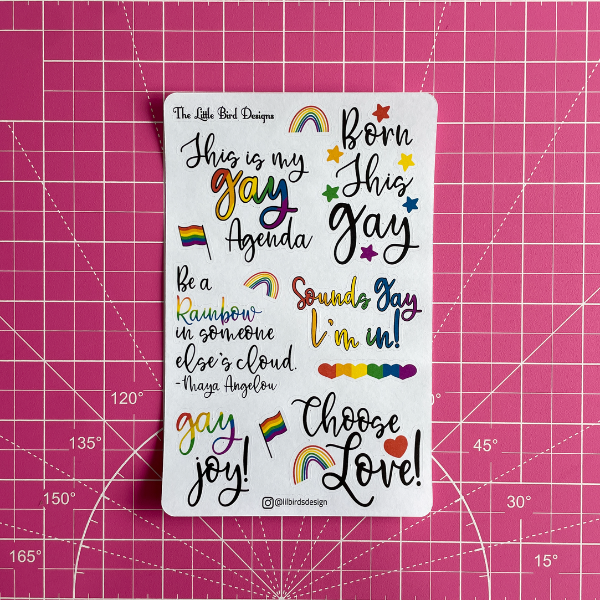 The Little Bird Designs
This is my
gay
Agenda
Born
This
gay
Be a
Rainbow
in someone
else's cloud.
-Maya Angelou
Sounds Gay
I'm in!
gay
joy!
Choose
Love!
@lilbirdsdesign
120°
135°
150°
165°
45°
30°
15°